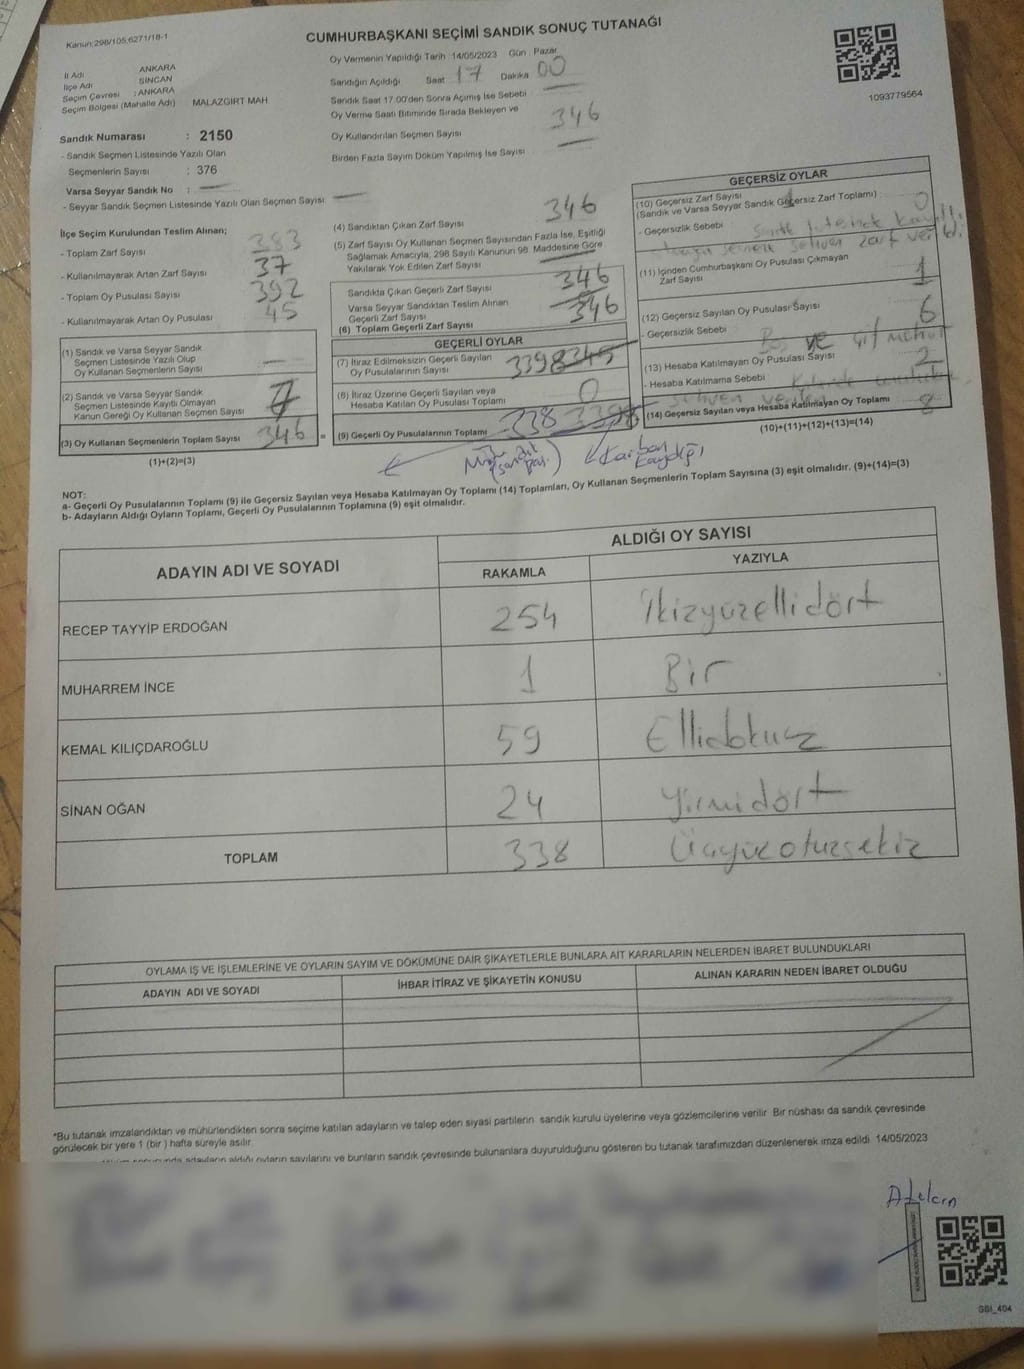 Kanun:298/105,6271/18-1
CUMHURBAŞKANI SEÇİMİ SANDIK SONUÇ TUTANAĞI
1093779564
İl Adı ANKARA
İlçe Adı SİNCAN
Seçim Çevresi : ANKARA
Seçim Bölgesi (Mahalle Adı) MALAZGİRT MAH
Sandık Numarası : 2150
- Sandık Seçmen Listesinde Yazılı Olan
Seçmenlerin Sayısı : 376
Varsa Seyyar Sandık No :
- Seyyar Sandık Seçmen Listesinde Yazılı Olan Seçmen Sayısı:
Oy Vermenin Yapıldığı Tarih 14/05/2023 Gün Pazar
Sandığın Açıldığı Saat 17 Dakika 00
Sandık Saat 17:00'den Sonra Açımış İse Sebebi
Oy Verme Saati Bitiminde Sırada Bekleyen ve
Oy Kullandırılan Seçmen Sayısı 346
Birden Fazla Sayım Döküm Yapılmış İse Sayısı
İlçe Seçim Kurulundan Teslim Alınan;
- Toplam Zarf Sayısı 383
- Kullanılmayarak Artan Zarf Sayısı 37
- Toplam Oy Pusulası Sayısı 392
- Kullanılmayarak Artan Oy Pusulası 45
(1) Sandık ve Varsa Seyyar Sandık
Seçmen Listesinde Yazılı Olup
Oy Kullanan Seçmenlerin Sayısı
(2) Sandık ve Varsa Seyyar Sandık
Seçmen Listesinde Kayıtlı Olmayan
Kanun Gereği Oy Kullanan Seçmen Sayısı
(3) Oy Kullanan Seçmenlerin Toplam Sayısı 346 =
(1)+(2)=(3)
(4) Sandıktan Çıkan Zarf Sayısı 346
(5) Zarf Sayısı Oy Kullanan Seçmen Sayısından Fazla İse, Eşitliği
Sağlamak Amacıyla, 298 Sayılı Kanunun 98. Maddesine Göre
Yakılarak Yok Edilen Zarf Sayısı
Sandıkta Çıkan Geçerli Zarf Sayısı 346
Varsa Seyyar Sandıktan Teslim Alınan
Geçerli Zarf Sayısı
(6) Toplam Geçerli Zarf Sayısı 346
GEÇERLİ OYLAR
(7) İtiraz Edilmeksizin Geçerli Sayılan
Oy Pusulalarının Sayısı 339 8345
(8) İtiraz Üzerine Geçerli Sayılan veya
Hesaba Katılan Oy Pusulası Toplamı 0
(9) Geçerli Oy Pusulalarının Toplamı 338
Karbon
kaydığı
GEÇERSİZ OYLAR
(10) Geçersiz Zarf Sayısı
(Sandık ve Varsa Seyyar Sandık Geçersiz Zarf Toplamı) 0
- Geçersizlik Sebebi
sehven zarf
(11) İçinden Cumhurbaşkanı Oy Pusulası Çıkmayan
Zarf Sayısı 1
(12) Geçersiz Sayılan Oy Pusulası Sayısı 6
- Geçersizlik Sebebi Boş VE çift mühür
(13) Hesaba Katılmayan Oy Pusulası Sayısı 2
- Hesaba Katılmama Sebebi
sehven
(14) Geçersiz Sayılan veya Hesaba Katılmayan Oy Toplamı 8
(10)+(11)+(12)+(13)=(14)
NOT:
a- Geçerli Oy Pusulalarının Toplamı (9) ile Geçersiz Sayılan veya Hesaba Katılmayan Oy Toplamı (14) Toplamları, Oy Kullanan Seçmenlerin Toplam Sayısına (3) eşit olmalıdır. (9)+(14)=(3)
b- Adayların Aldığı Oyların Toplamı, Geçerli Oy Pusulalarının Toplamına (9) eşit olmalıdır.
ADAYIN ADI VE SOYADI ALDIĞI OY SAYISI
RAKAMLA YAZIYLA
RECEP TAYYİP ERDOĞAN 254 İkizyüzellidört
MUHARREM İNCE 1 Bir
KEMAL KILIÇDAROĞLU 59 Ellidokuz
SİNAN OĞAN 24 Yirmidört
TOPLAM 338 Üçyüzotuzsekiz
OYLAMA İŞ VE İŞLEMLERİNE VE OYLARIN SAYIM VE DÖKÜMÜNE DAİR ŞİKAYETLERLE BUNLARA AİT KARARLARIN NELERDEN İBARET BULUNDUKLARI
ADAYIN ADI VE SOYADI İHBAR İTİRAZ VE ŞİKAYETİN KONUSU ALINAN KARARIN NEDEN İBARET OLDUĞU
*Bu tutanak imzalandıktan ve mühürlendikten sonra seçime katılan adayların ve talep eden siyasi partilerin sandık kurulu üyelerine veya gözlemcilerine verilir. Bir nüshası da sandık çevresinde
görülecek bir yere 1 (bir ) hafta süreyle asılır.
adayların aldığı oyların sayılarını ve bunların sandık çevresinde bulunanlara duyurulduğunu gösteren bu tutanak tarafımızdan düzenlenerek imza edildi 14/05/2023
SBI_404